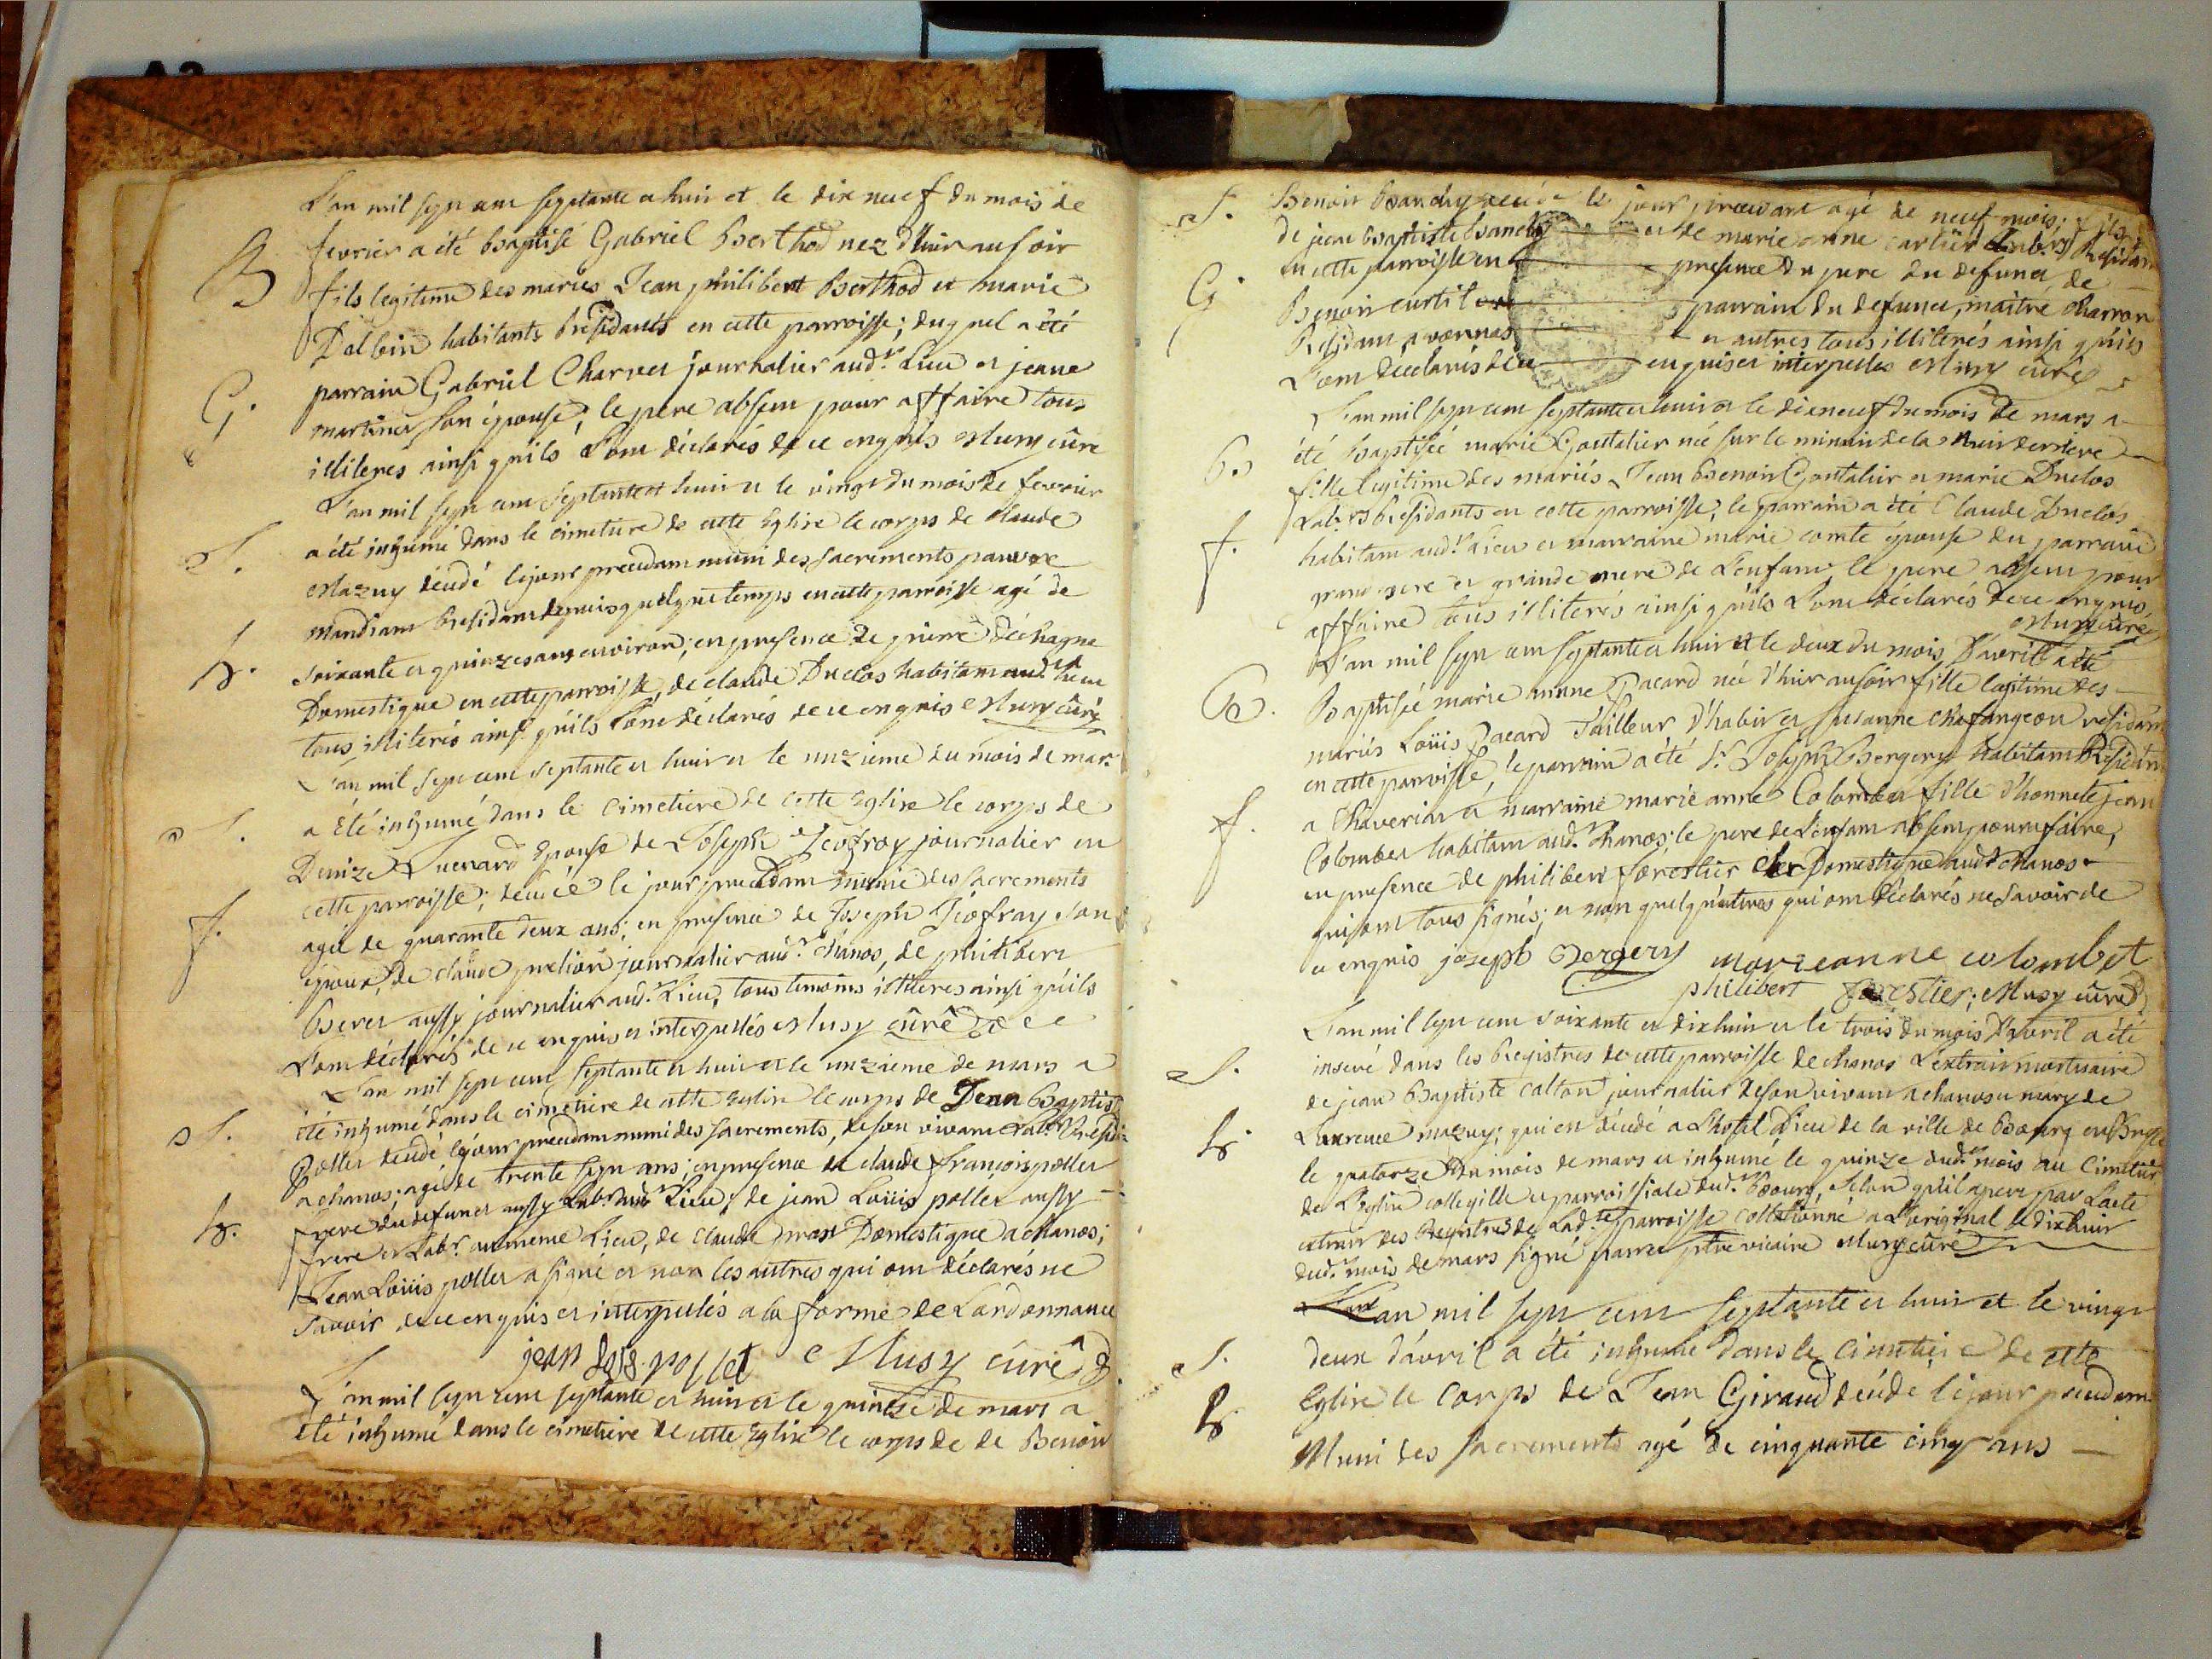 L'an mil sept cent septante et huit et le dix neuf du mois de
B fevrier a été baptisé Gabriel Berthod nez d'hier au soir
fils legitime des mariés Jean philibert Berthod et marie
Dalbin habitants residants en cette parroisse; duquel a été
G. parrain Gabriel Charvet journalier aud.t Lieu et jeane
martinet son épouse; le pere absent pour affaire tous
illiterés ainsi quils L'ont déclarés de ce enquis Musy cûré
L'an mil sept cent septante et huit et le vingt du mois de fevrier
S. a été inhumé dans le cimetiere de cette Eglise le corps de claude
Mazuy décédé le jour precedant muni des sacrements pauvre
mandiant residant depuis quelque temps en cette parroisse agé de
h. soixante et quinze ans environ; en presence de pierre déchagne
Domestique en cette parroisse, de claude Duclos habitant aud.t Lieu
tous illiterés ainsi quils L'ont déclarés de ce enquis Musy cûré
L'an mil sept cent septante et huit et le unzieme du mois de mars
S. a été inhumé dans le cimetiere de cette Eglise le corps de
Denize Suerrard Epouse de Joseph Jeofroy journalier en
cette parroisse; décédée le jour precedant munie des sacrements
f. agée de quarante deux ans; en presence de Joseph Jéofray son
époux, de claude prelion journalier aud.t chanos, de philibert
Beret aussy journalier aud.t Lieu, tous temoins illiteres ainsi quils
L'ont déclarés de ce enquis et interpellés Musy cûré
L'an mil sept cent septante et huit et le unzieme de mars a
S. été inhumé dans le cimetiere de cette Eglise le corps de Jean Baptiste
Pollet décédé le jour precedant muni des sacrements, de son vivant Lab.r residant
a chanos; agé de trente sept ans; en presence de claude françois pollet
h. frere du defunct aussy Lab.r aud.t Lieu; de jean Loüis pollet aussy
frere et Lab.r au meme Lieu, de claude Domestique a chanos;
Jean Loüis pollet a signé et non les autres qui ont déclarés ne
savoir de ce enquis et interpellés a la forme de Lordonnance
jean Lois pollet Musy cûré
L'an mil sept cent septante et huit et le quinze de mars a
été inhumé dans le cimetiere de cette Eglise le corps de de Benoit
S. Benoit Bandy décédé le jour precedant agé de neuf mois; fils
de jean Baptiste Bandy et de marie anne cartier Lab.rs residants
en cette parroisse en presence du pere du defunct, de
G Benoit curtil parrain du defunct, maître charron
Residant a vonnas et autres tous illiterés ainsi quils
L'ont declarés de ce enquis et interpellés Musy cûré
L'an mil sept cent septante et huit et le dixneuf du mois de mars a
b. été baptisée marie Goutalier née sur le minuit de la nuit derniere
fille legitime des mariés Jean Benoit Goutalier et marie Duclos
Lab.rs residants en cette parroisse, le parrain a été Claude Duclos
f. habitant aud.t Lieu et marraine marie comte épouse du parrain
grand pere et grande mere de L'enfant le pere absent pour
affaire tous illiterés ainsi quils L'ont déclarés de ce enquis
Musy cûré
L'an mil sept cent septante et huit et le deux du mois D'avril a été
B. Baptisée marie anne Pacard née d'hier au soir fille legitime des
mariés Loüis Pacard Tailleur d'habit et susanne chafangeon residants
en cette parroisse, le parrain a été S.r Joseph Bergery habitant Residant
f. a Chaveriat et marraine marie anne Colombet fille d'honnete jean
Colombet habitant aud.t chanos; le pere de L'enfant absent pour afaire,
en presence de philibert forestier Domestique aud.t chanos
qui ont tous signés; et non quelqu'autres qui ont déclarés ne savoir de
ce enquis joseph Bergery marieanne colombet
philibert forestier; Musy cûré
L'an mil sept cent soixante et dixhuit et le trois du mois D'avril a été
S. inseré dans les Registres de cette parroisse de chanos L'extrait mortuaire
de jean Baptiste calton journalier de son vivant a chanos et mary de
h. Laurence mazuy; qui est décédé a L'hotel Dieu de la ville de Bourg en Bresse
le quatorze du mois de mars et inhumé le quinze dud.t mois au cimetiere
de L'Eglise collegialle et parroissiale dud.t Bourg, selon quil apert par L'acte
extrait des Registres de Lad.te parroisse collationné a L'original le dixhuit
dud.t mois de mars signé ptre vicaire Musy cûré
L'an mil sept cent septante et huit et le vingt
S. deux d'avril a été inhumé dans le Cimetiere de cette
h Eglise le Corps de Jean Giraud décédé le jour precedant
Muni des sacrements agé de cinquante cinq ans